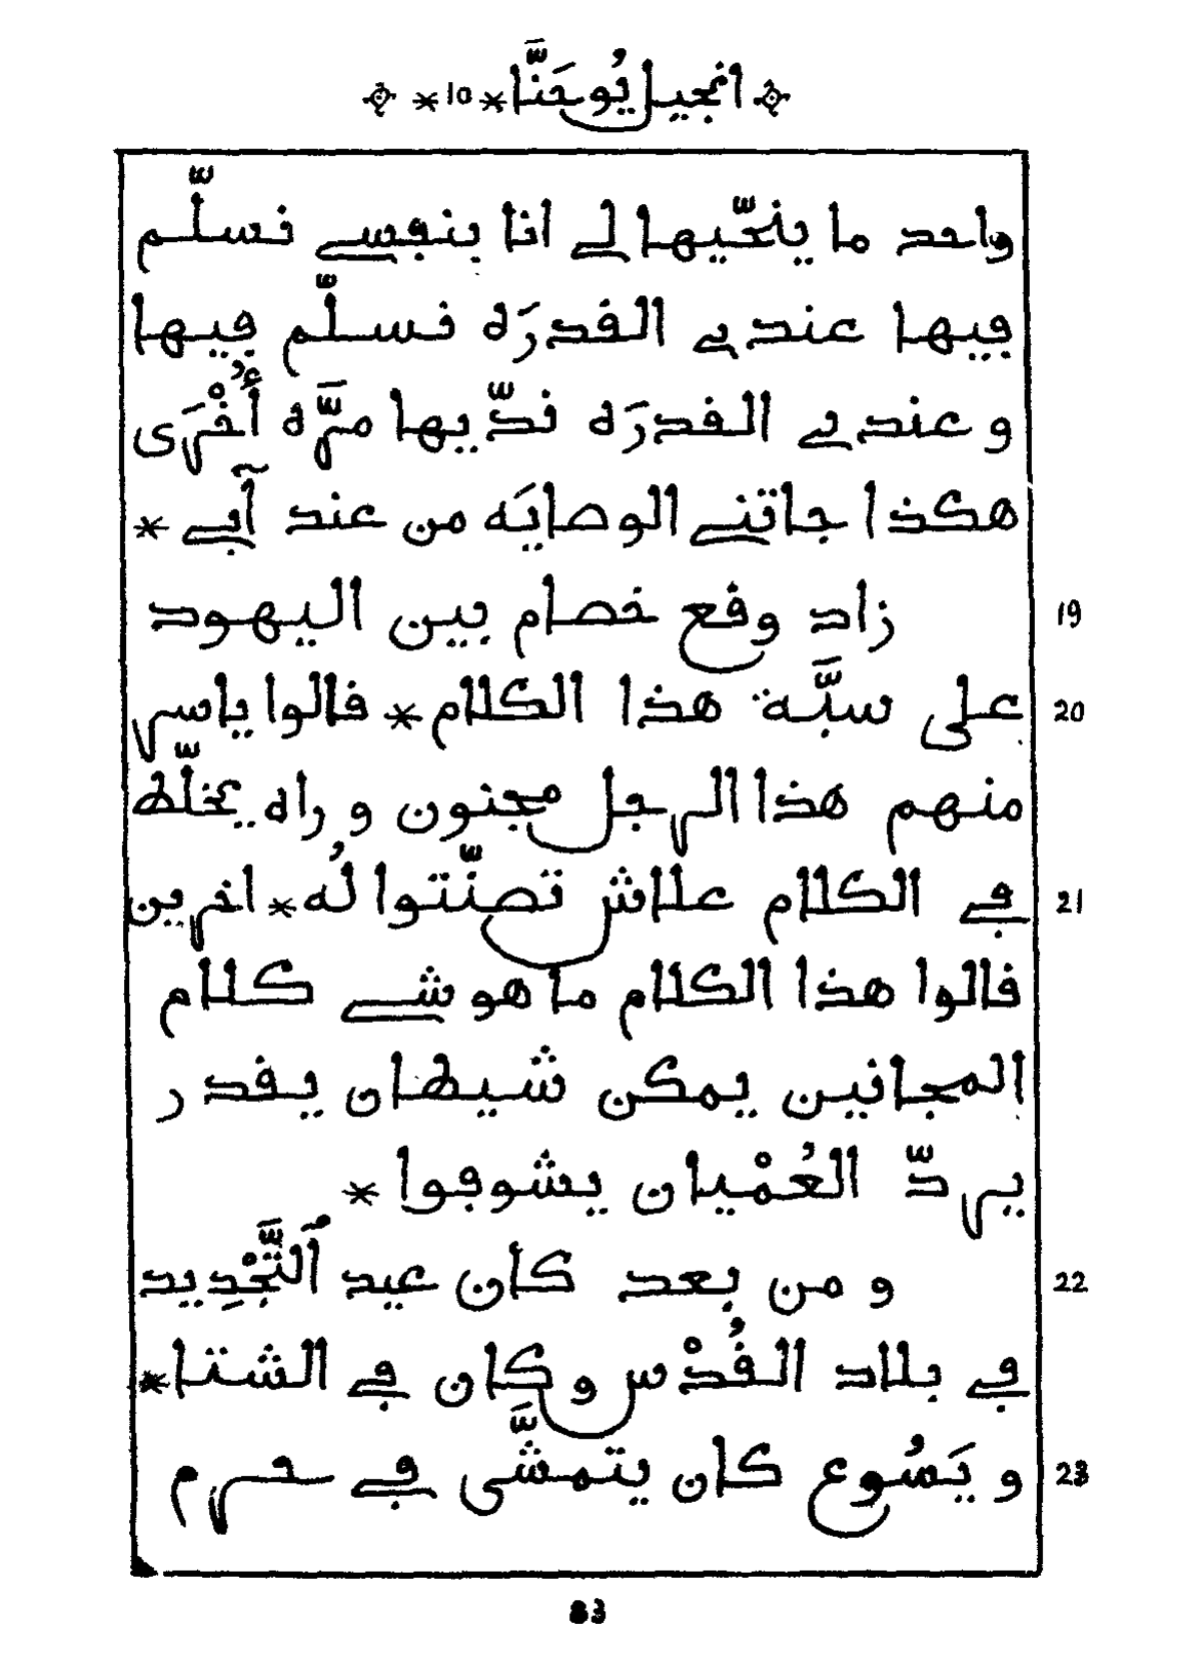 انجيل يُوحَنَّا * ١٥ *
واحد ما ينحّيها لي انا بنفسي نسلّم
فيها عندي القدرَه نسلّم فيها
و عندي القدرَه ندّيها مرَّه أُخْرَى
هكذا جاتني الوصايَه من عند آبي *
19 زاد وقع خصام بين اليهود
20 على سبَّة هذا الكلام * قالوا ياسر
منهم هذا الرجل مجنون و راه يخلّط
21 في الكلام علاش تصنّتوا لُه * اخرين
قالوا هذا الكلام ما هو شي كلام
المجانين يمكن شيطان يقدر
يردّ العُمْيان يشوفوا *
22 و من بعد كان عيد ٱلتَّجْدِيد
في بلاد القُدْس و كان في الشتا *
23 و يَسُوع كان يتمشَّى في حرم
83